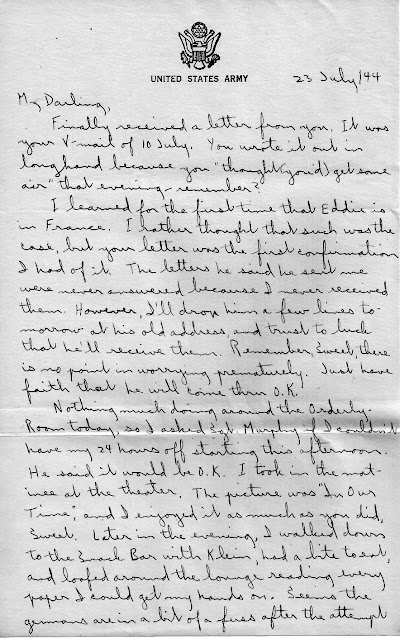 UNITED STATES ARMY
23 July/44
My Darling,
Finally received a letter from you. It was
your V-mail of 10 July. You wrote it out in
longhand because you "thought (you'd) get some
air" that evening - remember?
I learned for the first time that Eddie is
in France. I rather thought that such was the
case, but your letter was the first confirmation
I had of it. The letters he said he sent me
were never answered because I never received
them. However, I'll drop him a few lines to-
morrow at his old address, and trust to luck
that he'll receive them. Remember, Sweet, there
is no point in worrying prematurely. Just have
faith that he will come thru O.K.
Nothing much doing around the Orderly-
Room today, so I asked Sgt. Murphy if I couldn't
have my 24 hours off starting this afternoon.
He said it would be O.K. I took in the mat-
inee at the theater. The picture was "In Our
Time", and I enjoyed it as much as you did,
Sweet. Later in the evening, I walked down
to the Snack Bar with Klein, had a bite to eat,
and loafed around the lounge reading every
paper I could get my hands on. Seems the
germans are in a bit of a fuss after the attempt